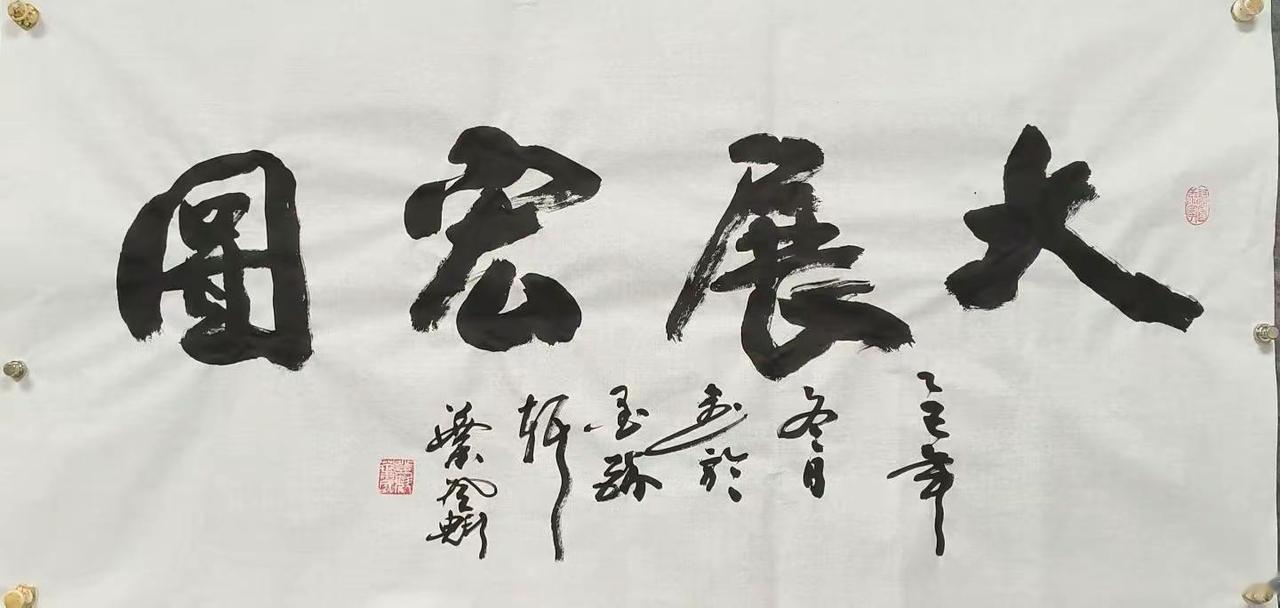 大展宏圖
乙巳年
冬日
書於
墨
軒